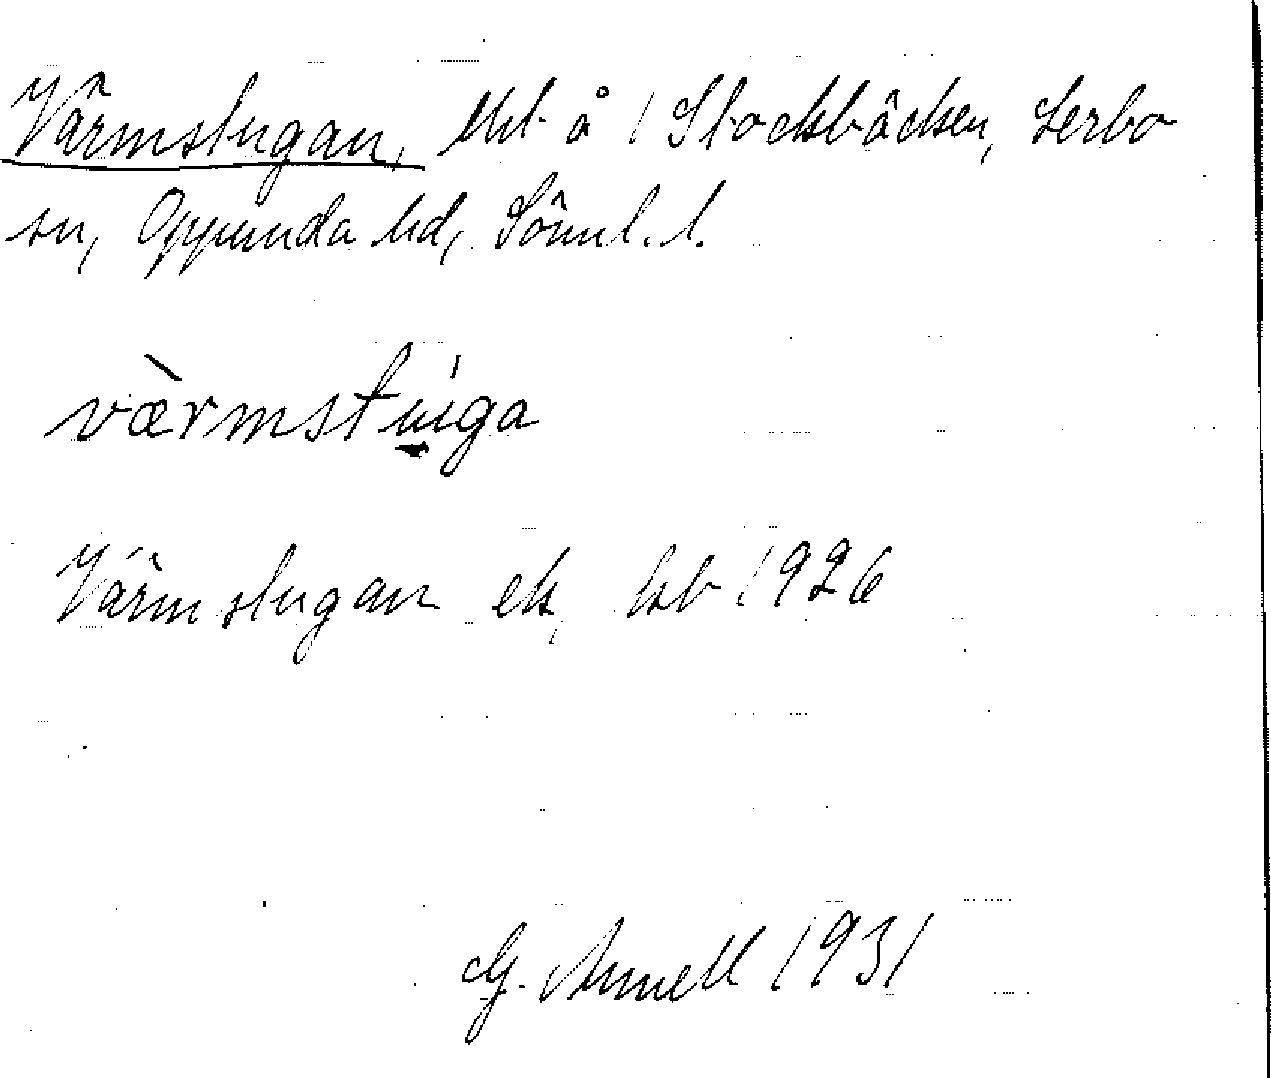 Värmstugan, lht å 1 Stockbäcken, Lerbo
sn, Oppunda hd, Söml. l.
værmstu̱ga
Värmstugan ek, kb 1926
G. Annell 1931